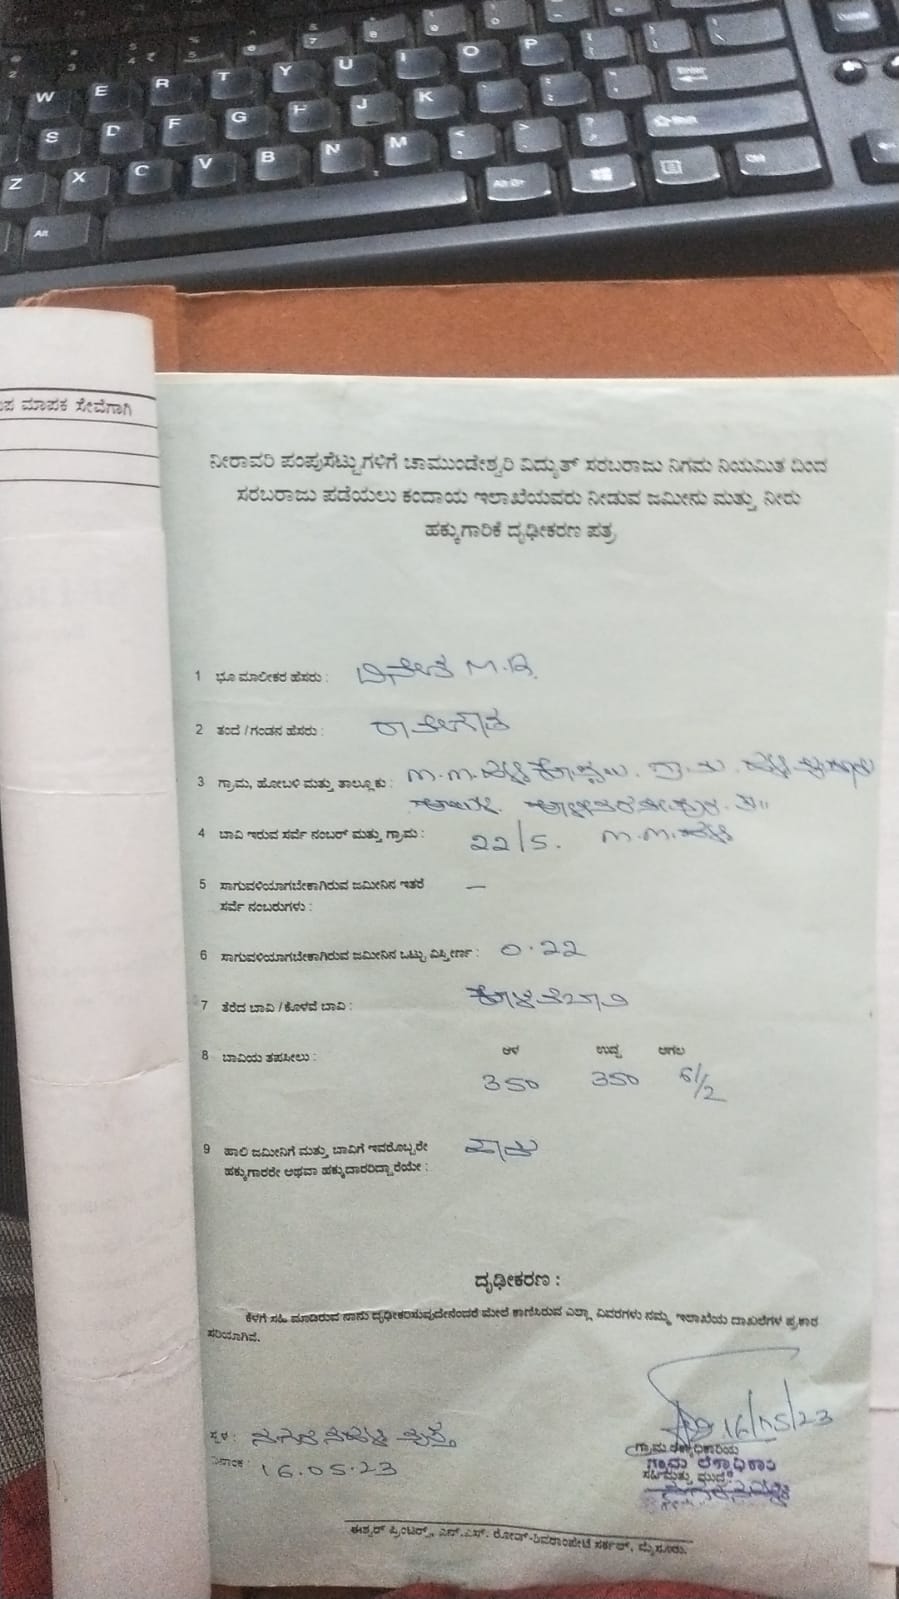 W E R T Y U I O P
S D F G H J K
Z X C V B N M
Enter
Shift
Alt Alt Gr Ctrl
ಮಾಪಕ ಸೇವೆಗಾಗಿ
ನೀರಾವರಿ ಪಂಪುಸೆಟ್ಟುಗಳಿಗೆ ಚಾಮುಂಡೇಶ್ವರಿ ವಿದ್ಯುತ್ ಸರಬರಾಜು ನಿಗಮ ನಿಯಮಿತ ದಿಂದ
ಸರಬರಾಜು ಪಡೆಯಲು ಕಂದಾಯ ಇಲಾಖೆಯವರು ನೀಡುವ ಜಮೀನು ಮತ್ತು ನೀರು
ಹಕ್ಕುಗಾರಿಕೆ ದೃಢೀಕರಣ ಪತ್ರ
1 ಭೂ ಮಾಲೀಕರ ಹೆಸರು : ದಿನೇಶ M.R.
2 ತಂದೆ / ಗಂಡನ ಹೆಸರು : ರಾಮೇಗೌಡ
3 ಗ್ರಾಮ, ಹೋಬಳಿ ಮತ್ತು ತಾಲ್ಲೂಕು : M.M.
4 ಬಾವಿ ಇರುವ ಸರ್ವೆ ನಂಬರ್ ಮತ್ತು ಗ್ರಾಮ : 22/5. M.M.
5 ಸಾಗುವಳಿಯಾಗಬೇಕಾಗಿರುವ ಜಮೀನಿನ ಇತರೆ —
ಸರ್ವೆ ನಂಬರುಗಳು :
6 ಸಾಗುವಳಿಯಾಗಬೇಕಾಗಿರುವ ಜಮೀನಿನ ಒಟ್ಟು ವಿಸ್ತೀರ್ಣ : 0.22
7 ತೆರೆದ ಬಾವಿ / ಕೊಳವೆ ಬಾವಿ : ಕೊಳವೆಬಾವಿ
8 ಬಾವಿಯ ತಪಸೀಲು : ಆಳ ಉದ್ದ ಅಗಲ
350 350 6 1/2
9 ಹಾಲಿ ಜಮೀನಿಗೆ ಮತ್ತು ಬಾವಿಗೆ ಇವರೊಬ್ಬರೇ ಹೌದು
ಹಕ್ಕುಗಾರರೇ ಅಥವಾ ಹಕ್ಕುದಾರರಿದ್ದಾರೆಯೇ :
ದೃಢೀಕರಣ :
ಕೆಳಗೆ ಸಹಿ ಮಾಡಿರುವ ನಾನು ದೃಢೀಕರಿಸುವುದೇನೆಂದರೆ ಮೇಲೆ ಕಾಣಿಸಿರುವ ಎಲ್ಲಾ ವಿವರಗಳು ನಮ್ಮ ಇಲಾಖೆಯ ದಾಖಲೆಗಳ ಪ್ರಕಾರ
ಸರಿಯಾಗಿವೆ.
16/05/23
ಸ್ಥಳ : ವೃತ್ತ
ದಿನಾಂಕ : 16.05.23
ಗ್ರಾಮ
ಗ್ರಾಮ ಲೆಕ್ಕಾಧಿಕಾರಿ
ಸಹಿ ಮತ್ತು ಮುದ್ರೆ
ಈಶ್ವರ್ ಪ್ರಿಂಟರ್ಸ್, ಎನ್.ಎಸ್. ರೋಡ್-ಶಿವರಾಂಪೇಟೆ ಸರ್ಕಲ್, ಮೈಸೂರು.